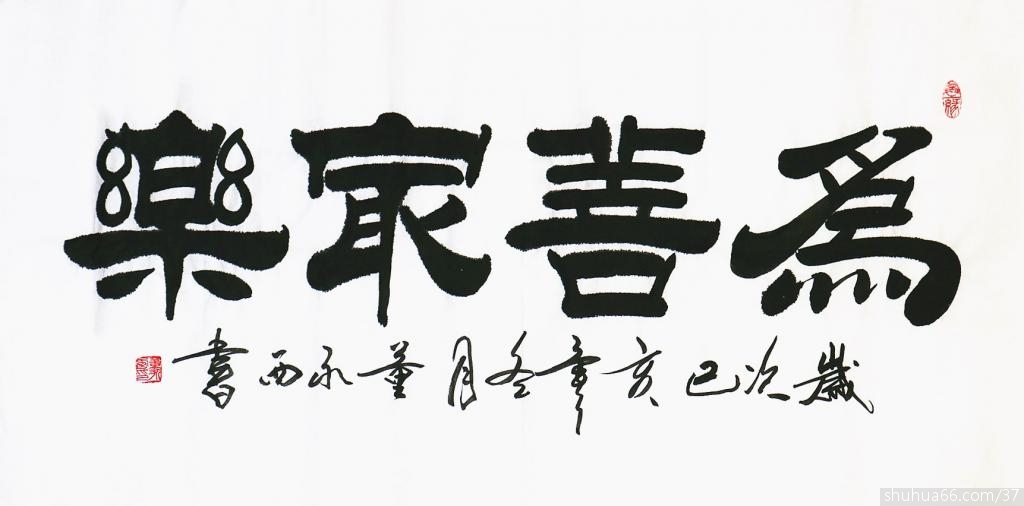 為善最樂
歲次己亥年冬月董永西書
shuhua66.com/37